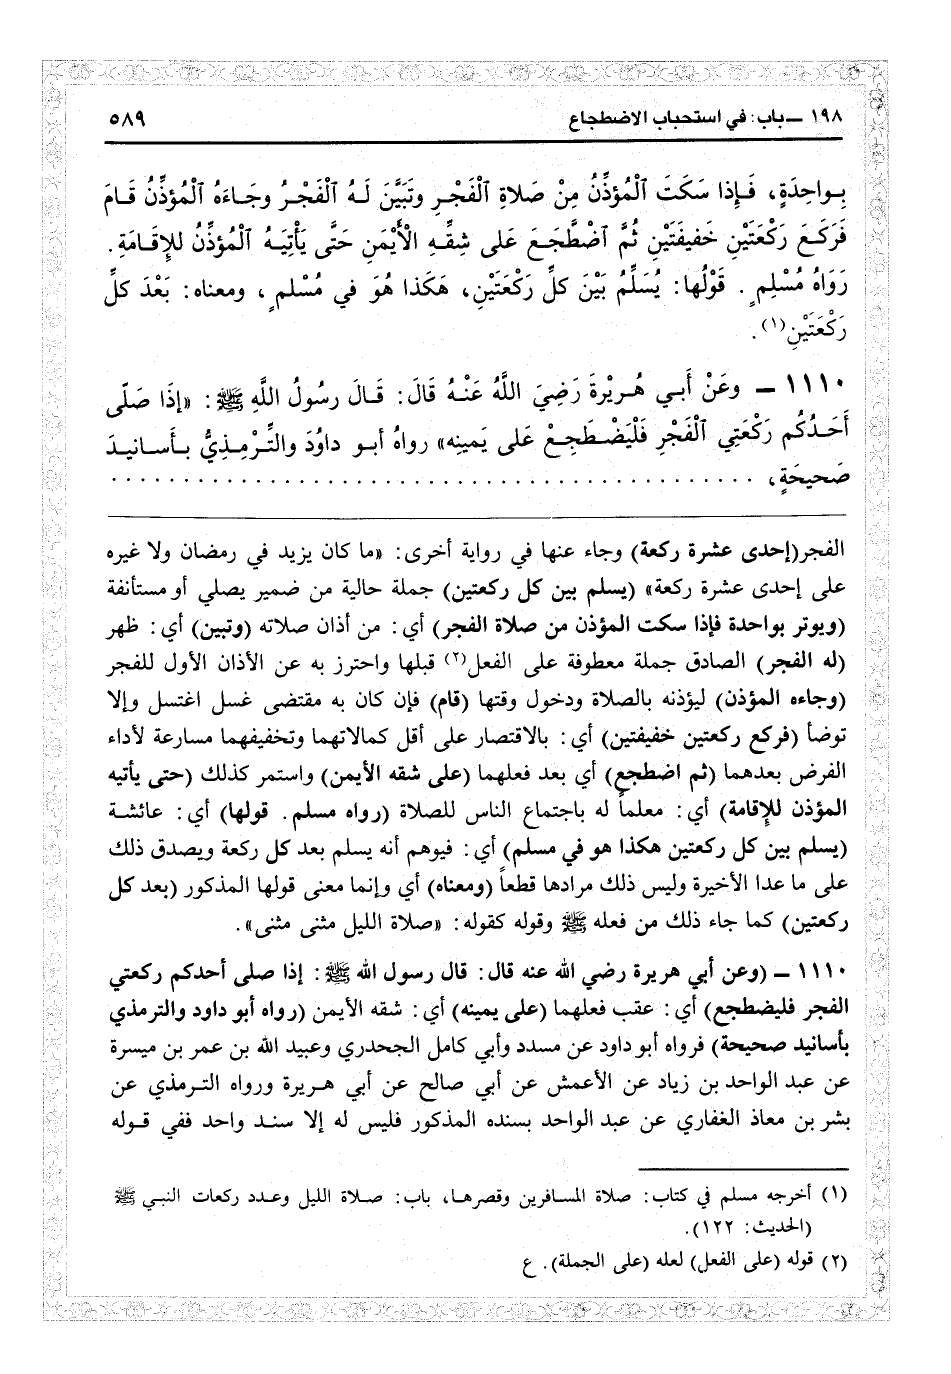 ١٩٨ ـ باب: في استحباب الاضطجاع ٥٨٩
بِوَاحِدَةٍ، فَإِذا سَكَتَ ٱلْمُؤَذِّنُ مِنْ صَلاَةِ ٱلْفَجْرِ وتَبَيَّنَ لَـهُ ٱلْفَجْـرُ وجَـاءَهُ ٱلْمُؤَذِّنُ قَـامَ
فَرَكَـعَ رَكْعَتَيْنِ خَفيفَتَيْنِ ثُمَّ ٱضْطَّجَعَ عَلى شِقِّهِ الأَيْمَنِ حَتَّى يَأْتِيَـهُ ٱلْمُؤَذِّنُ للإِقَامَةِ.
رَوَاهُ مُسْلِمٍ. قَوْلُها: يُسَلِّمُ بَيْنَ كلِّ رَكْعَتَيْنِ، هَكَذا هُوَ في مُسْلمٍ، ومعناه: بَعْدَ كلِّ
رَكْعَتَيْنِ(١).
١١١٠ ـ وعَنْ أَبـي هُـريْرةَ رَضِيَ اللَّهُ عَنْـهُ قَالَ: قَـالَ رسُولُ اللَّهِ ﷺ: «إذَا صَلّى
أَحَـدُكُم رَكْعَتَيِ ٱلْفَجْرِ فَلْيَضْـطَجِـعْ عَلى يَمينِه» رواهُ أبـو داوُدَ والتِّـرْمِـذِيُّ بـأَسـانيـدَ
صَحيحَةٍ، . . . . . . . . . . . . . . . . . . . . . . . . . . . . . . . . . . . . . . . .
الفجر(إحدى عشرة ركعة) وجاء عنها في رواية أخرى: «ما كان يزيد في رمضان ولا غيره
على إحدى عشرة ركعة» (يسلم بين كل ركعتين) جملة حالية من ضمير يصلي أو مستأنفة
(ويوتر بواحدة فإذا سكت المؤذن من صلاة الفجر) أي: من أذان صلاته (وتبين) أي: ظهر
(له الفجر) الصادق جملة معطوفة على الفعل(٢) قبلها واحترز به عن الأذان الأول للفجر
(وجاءه المؤذن) ليؤذنه بالصلاة ودخول وقتها (قام) فإن كان به مقتضى غسل اغتسل وإلا
توضأ (فركع ركعتين خفيفتين) أي: بالاقتصار على أقل كمالاتهما وتخفيفهما مسارعة لأداء
الفرض بعدهما (ثم اضطجع) أي بعد فعلهما (على شقه الأيمن) واستمر كذلك (حتى يأتيه
المؤذن للإقامة) أي: معلماً له باجتماع الناس للصلاة (رواه مسلم. قولها) أي: عائشـة
(يسلم بين كل ركعتين هكذا هو في مسلم) أي: فيوهم أنه يسلم بعد كل ركعة ويصدق ذلك
على ما عدا الأخيرة وليس ذلك مرادها قطعاً (ومعناه) أي وإنما معنى قولها المذكور (بعد كل
ركعتين) كما جاء ذلك من فعله ﷺ وقوله كقوله: «صلاة الليل مثنى مثنى».
١١١٠ ـ (وعن أبي هريرة رضي الله عنه قال: قال رسول الله ﷺ: إذا صلى أحدكم ركعتي
الفجر فليضطجع) أي: عقب فعلهما (على يمينه) أي: شقه الأيمن (رواه أبو داود والترمذي
بأسانيد صحيحة) فرواه أبو داود عن مسدد وأبي كامل الجحدري وعبيد الله بن عمر بن ميسرة
عن عبد الواحد بن زياد عن الأعمش عن أبي صالح عن أبي هـريرة ورواه التـرمذي عن
بشر بن معاذ الغفاري عن عبد الواحد بسنده المذكور فليس له إلا سنـد واحد ففي قـوله
(١) أخرجه مسلم في كتاب: صلاة المسافرين وقصرهـا، باب: صـلاة الليل وعـدد ركعات النبـي ﷺ
(الحديث: ١٢٢).
(٢) قوله (على الفعل) لعله (على الجملة). ع